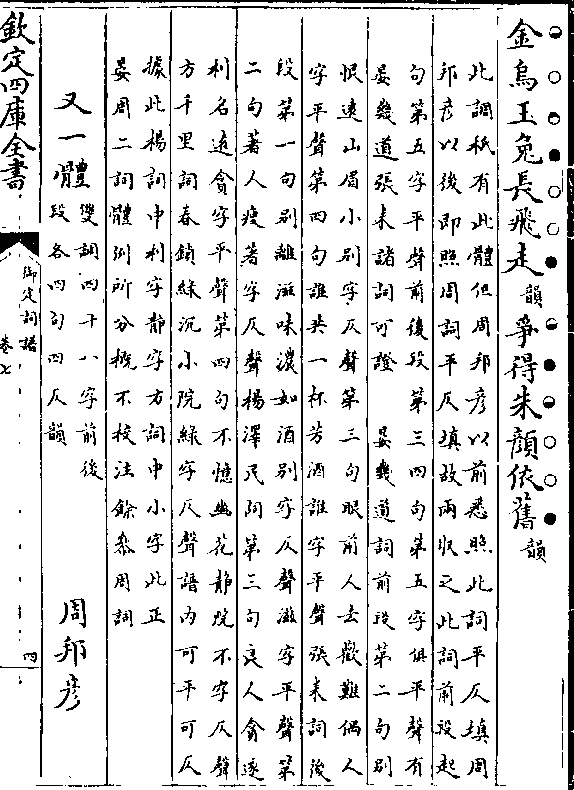 金烏玉兔長飛走韻爭得朱顏依舊韻
此調衹有此體但周邦彥以前悉照此詞平仄填周
邦彥以後即照周詞平仄填故兩收之此詞前段起
句第五字平聲前後段第三四句第五字俱平聲有
晏幾道張耒諸詞可證 晏幾道詞前段第二句別
恨遠山眉小別字仄聲第三句眼前人去歡難偶人
字平聲第四句誰共一杯芳酒誰字平聲張耒詞後
段第一句別離滋味濃如酒別字仄聲滋字平聲第
二句著人瘦著字仄聲楊澤民詞第三句良人貪逐
利名遠貪字平聲第四句不憶幽花静院不字仄聲
方千里詞春鎖綠沉小院綠字仄聲譜內可平可仄
據此楊詞中利字静字方詞中小字此正
晏周二詞體例所分概不校注餘參周詞
又一體 雙調四十八字前後
段各四句四仄韻 周邦彥
欽定四庫全書 御定詞譜 卷七 四